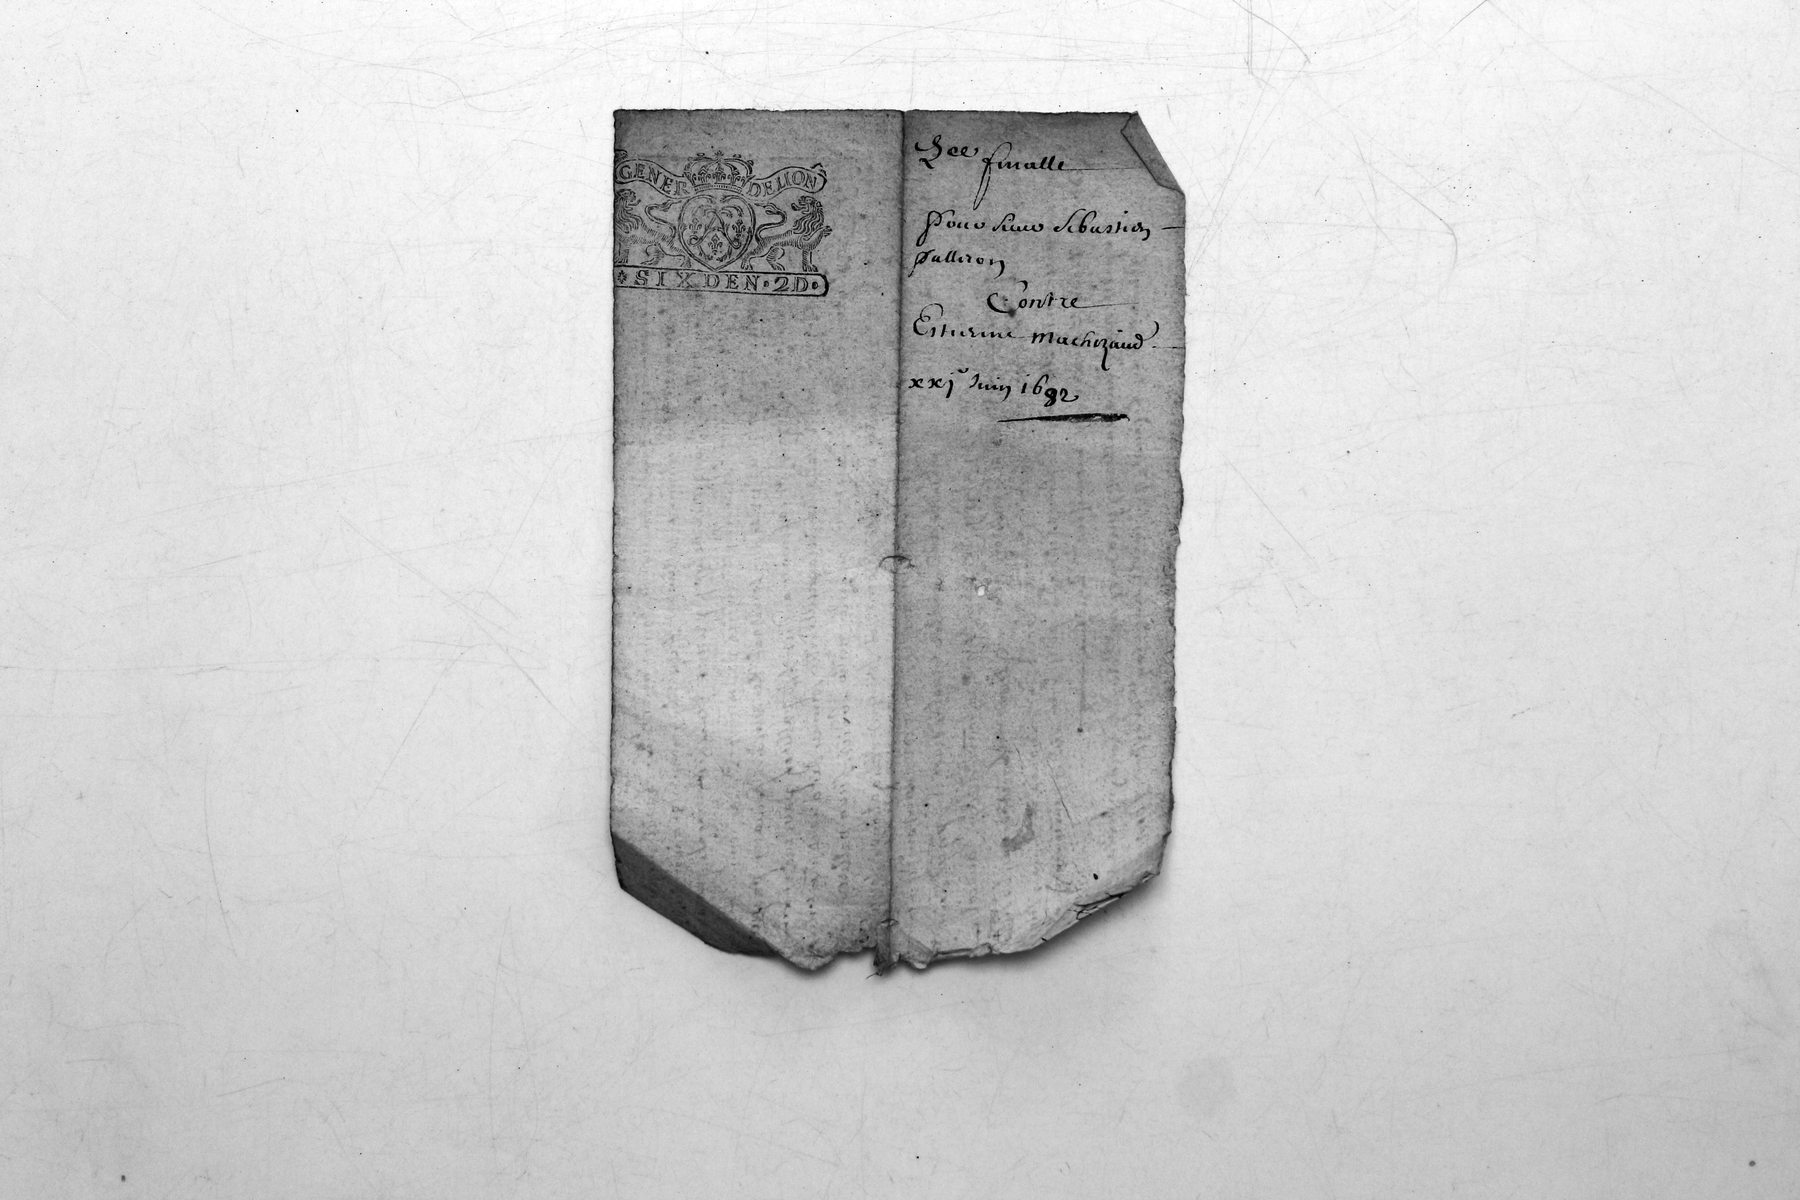 GENER DELION
SIX DEN · 2D ·
finalle
Pour sieur Sebastien
Palleron
Contre
Estienne Machezaud
xxj Juin 1682